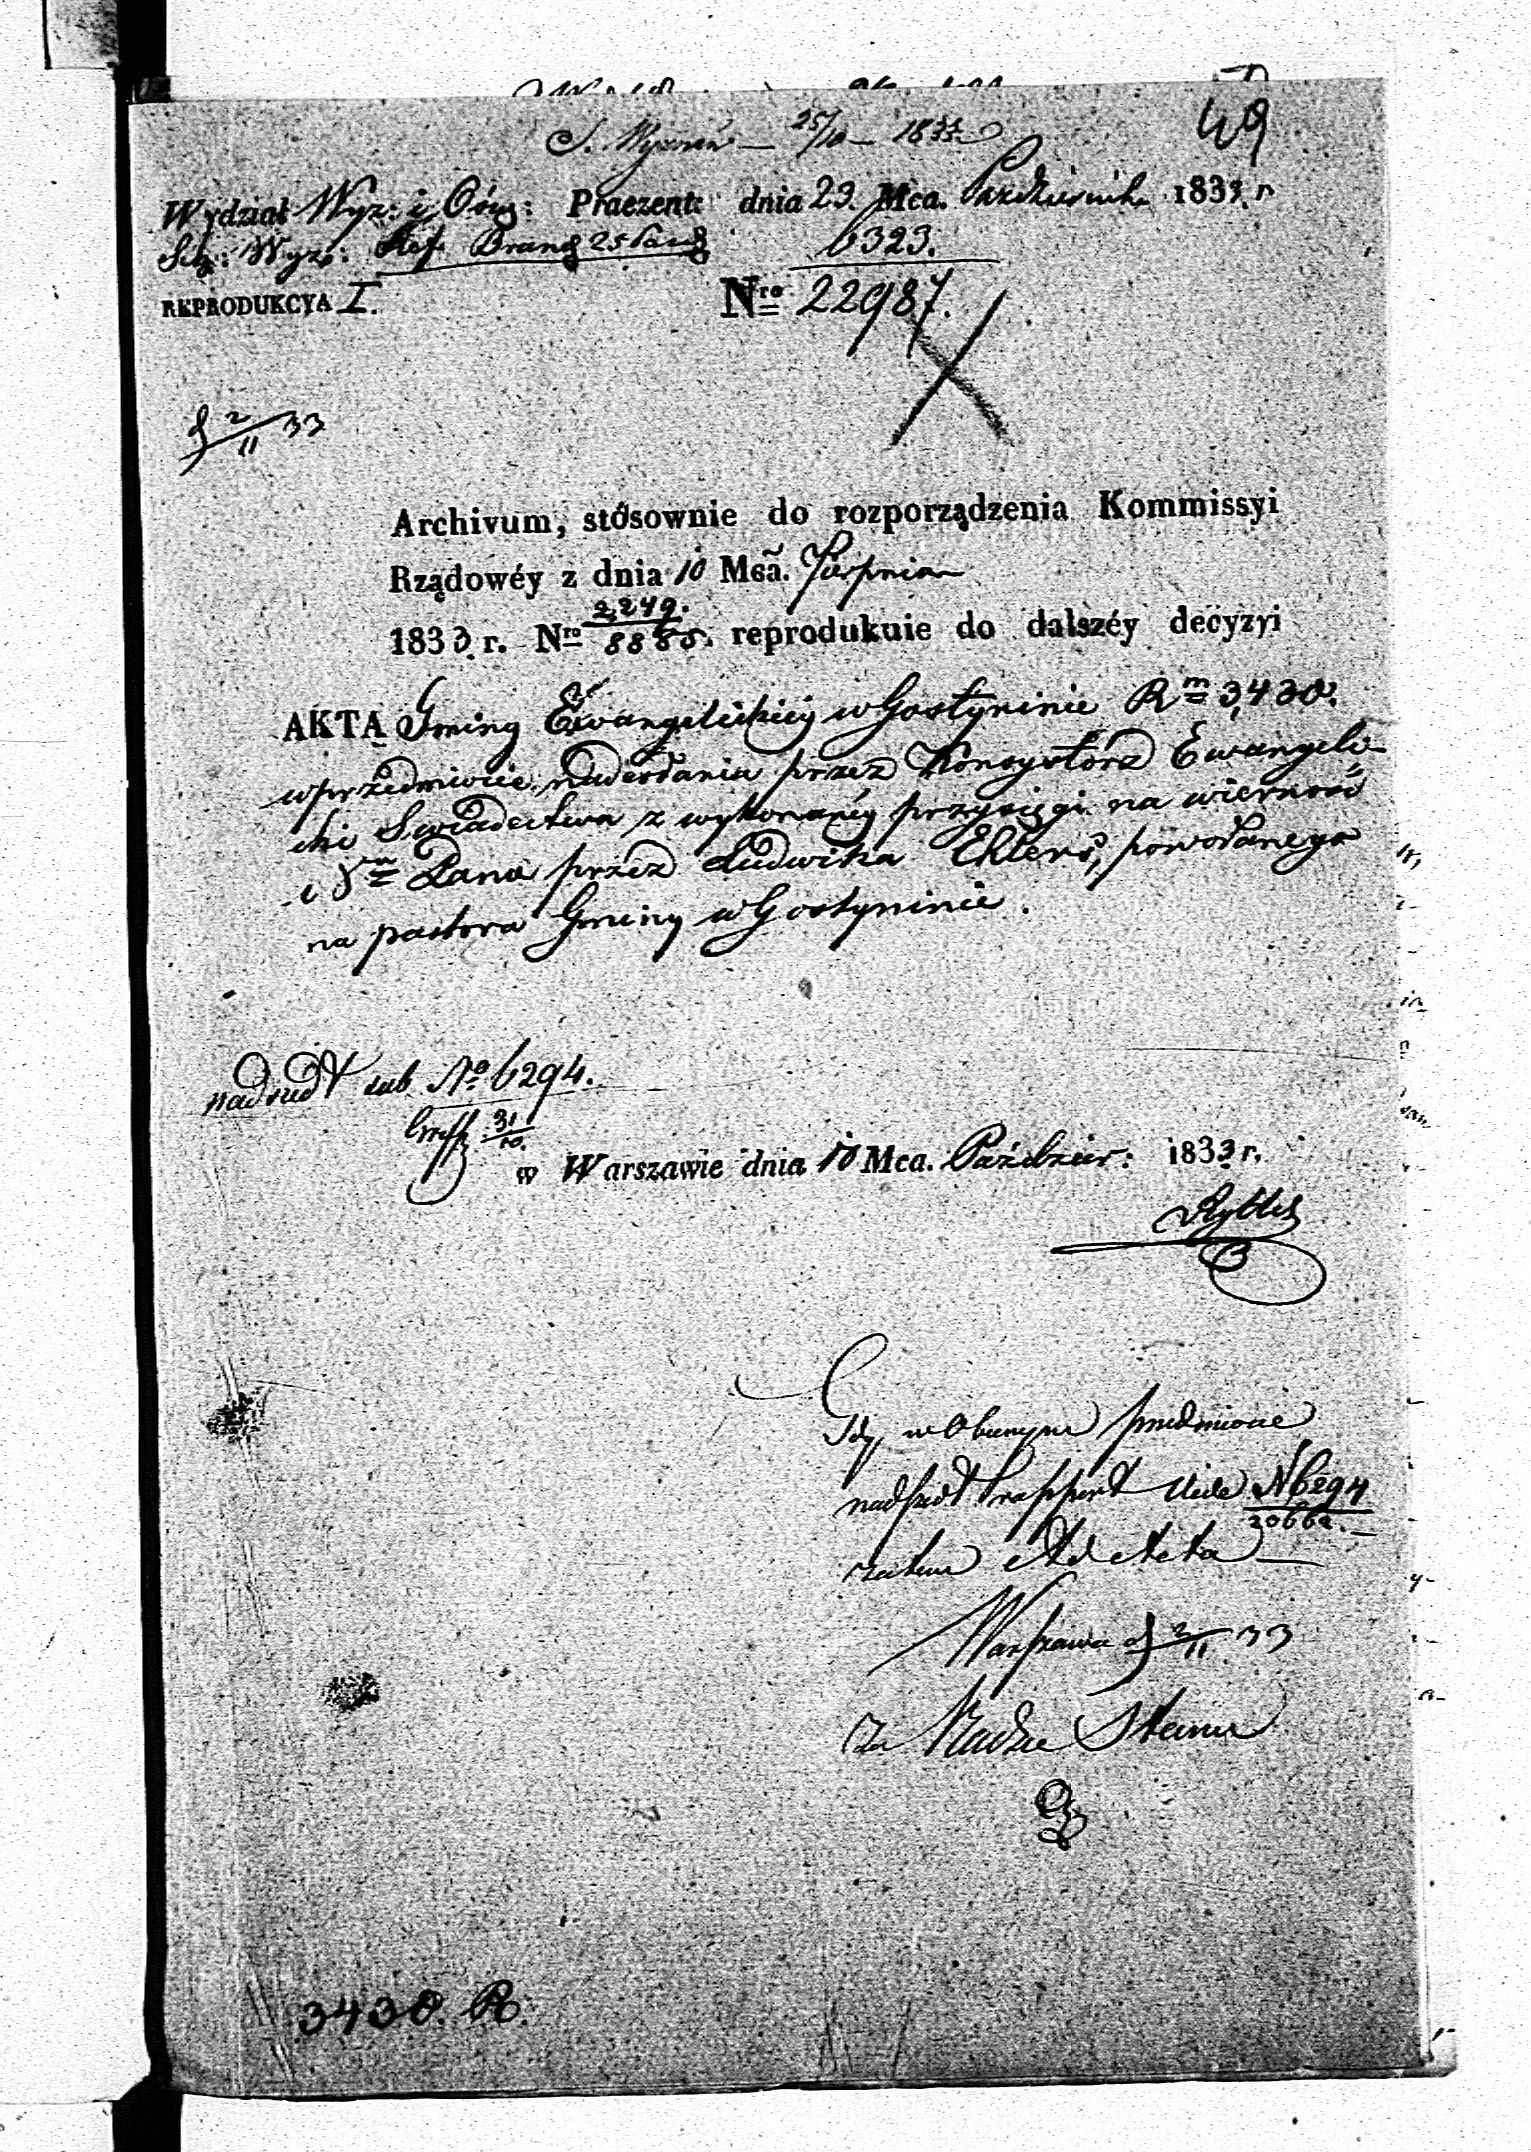 S. Wyznań — 25/10 — 1833
49
Wydział Wyz: i Ośw: Praezent: dnia 23. Mca. Października 1833. r
Sek: Wyz: Ref. Brand 25 Paźdz
6323.
REPRODUKCYA I.
Nro 22987.
d 2/11 33
Archivum, stósownie do rozporządzenia Kommissyi
Rządowéy z dnia 10 Mca. Sierpnia
1833 r. Nro 2,249./8885. reprodukuie do dalszéy decyzyi
AKTA Gminy Ewangelickiéy w Gostyninie Rm 3,430.
w przedmiocie nadesłania przez Konsystorz Ewangeli-
cki Swiadectwa z wykonanéy przysięgi na wierność
i Pana przez Ludwika Ehlers, powołanego
na pastora Gminy w Gostyninie.
nadszedł sub No 6294.
31/10.
w Warszawie dnia 10 Mca. Paździer: 1833 r.
Gdy w Obecnym przedmiocie
nadszedł rapport Vide N 6294/20662. —
zatem Ad Acta —
Warszawa d 2/11 33
Za Radzcę Stanu
3430. R.